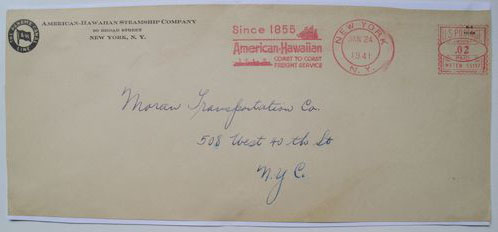 AMERICAN-HAWAIIAN STEAMSHIP COMPANY
90 BROAD STREET
NEW YORK, N. Y.
Since 1855
American-Hawaiian
COAST TO COAST
FREIGHT SERVICE
NEW YORK
JUN 24
1941
N. Y.
U.S. POSTAGE
.02
METER
Moran Transportation Co.
508 West 40 th St
N.Y.C.